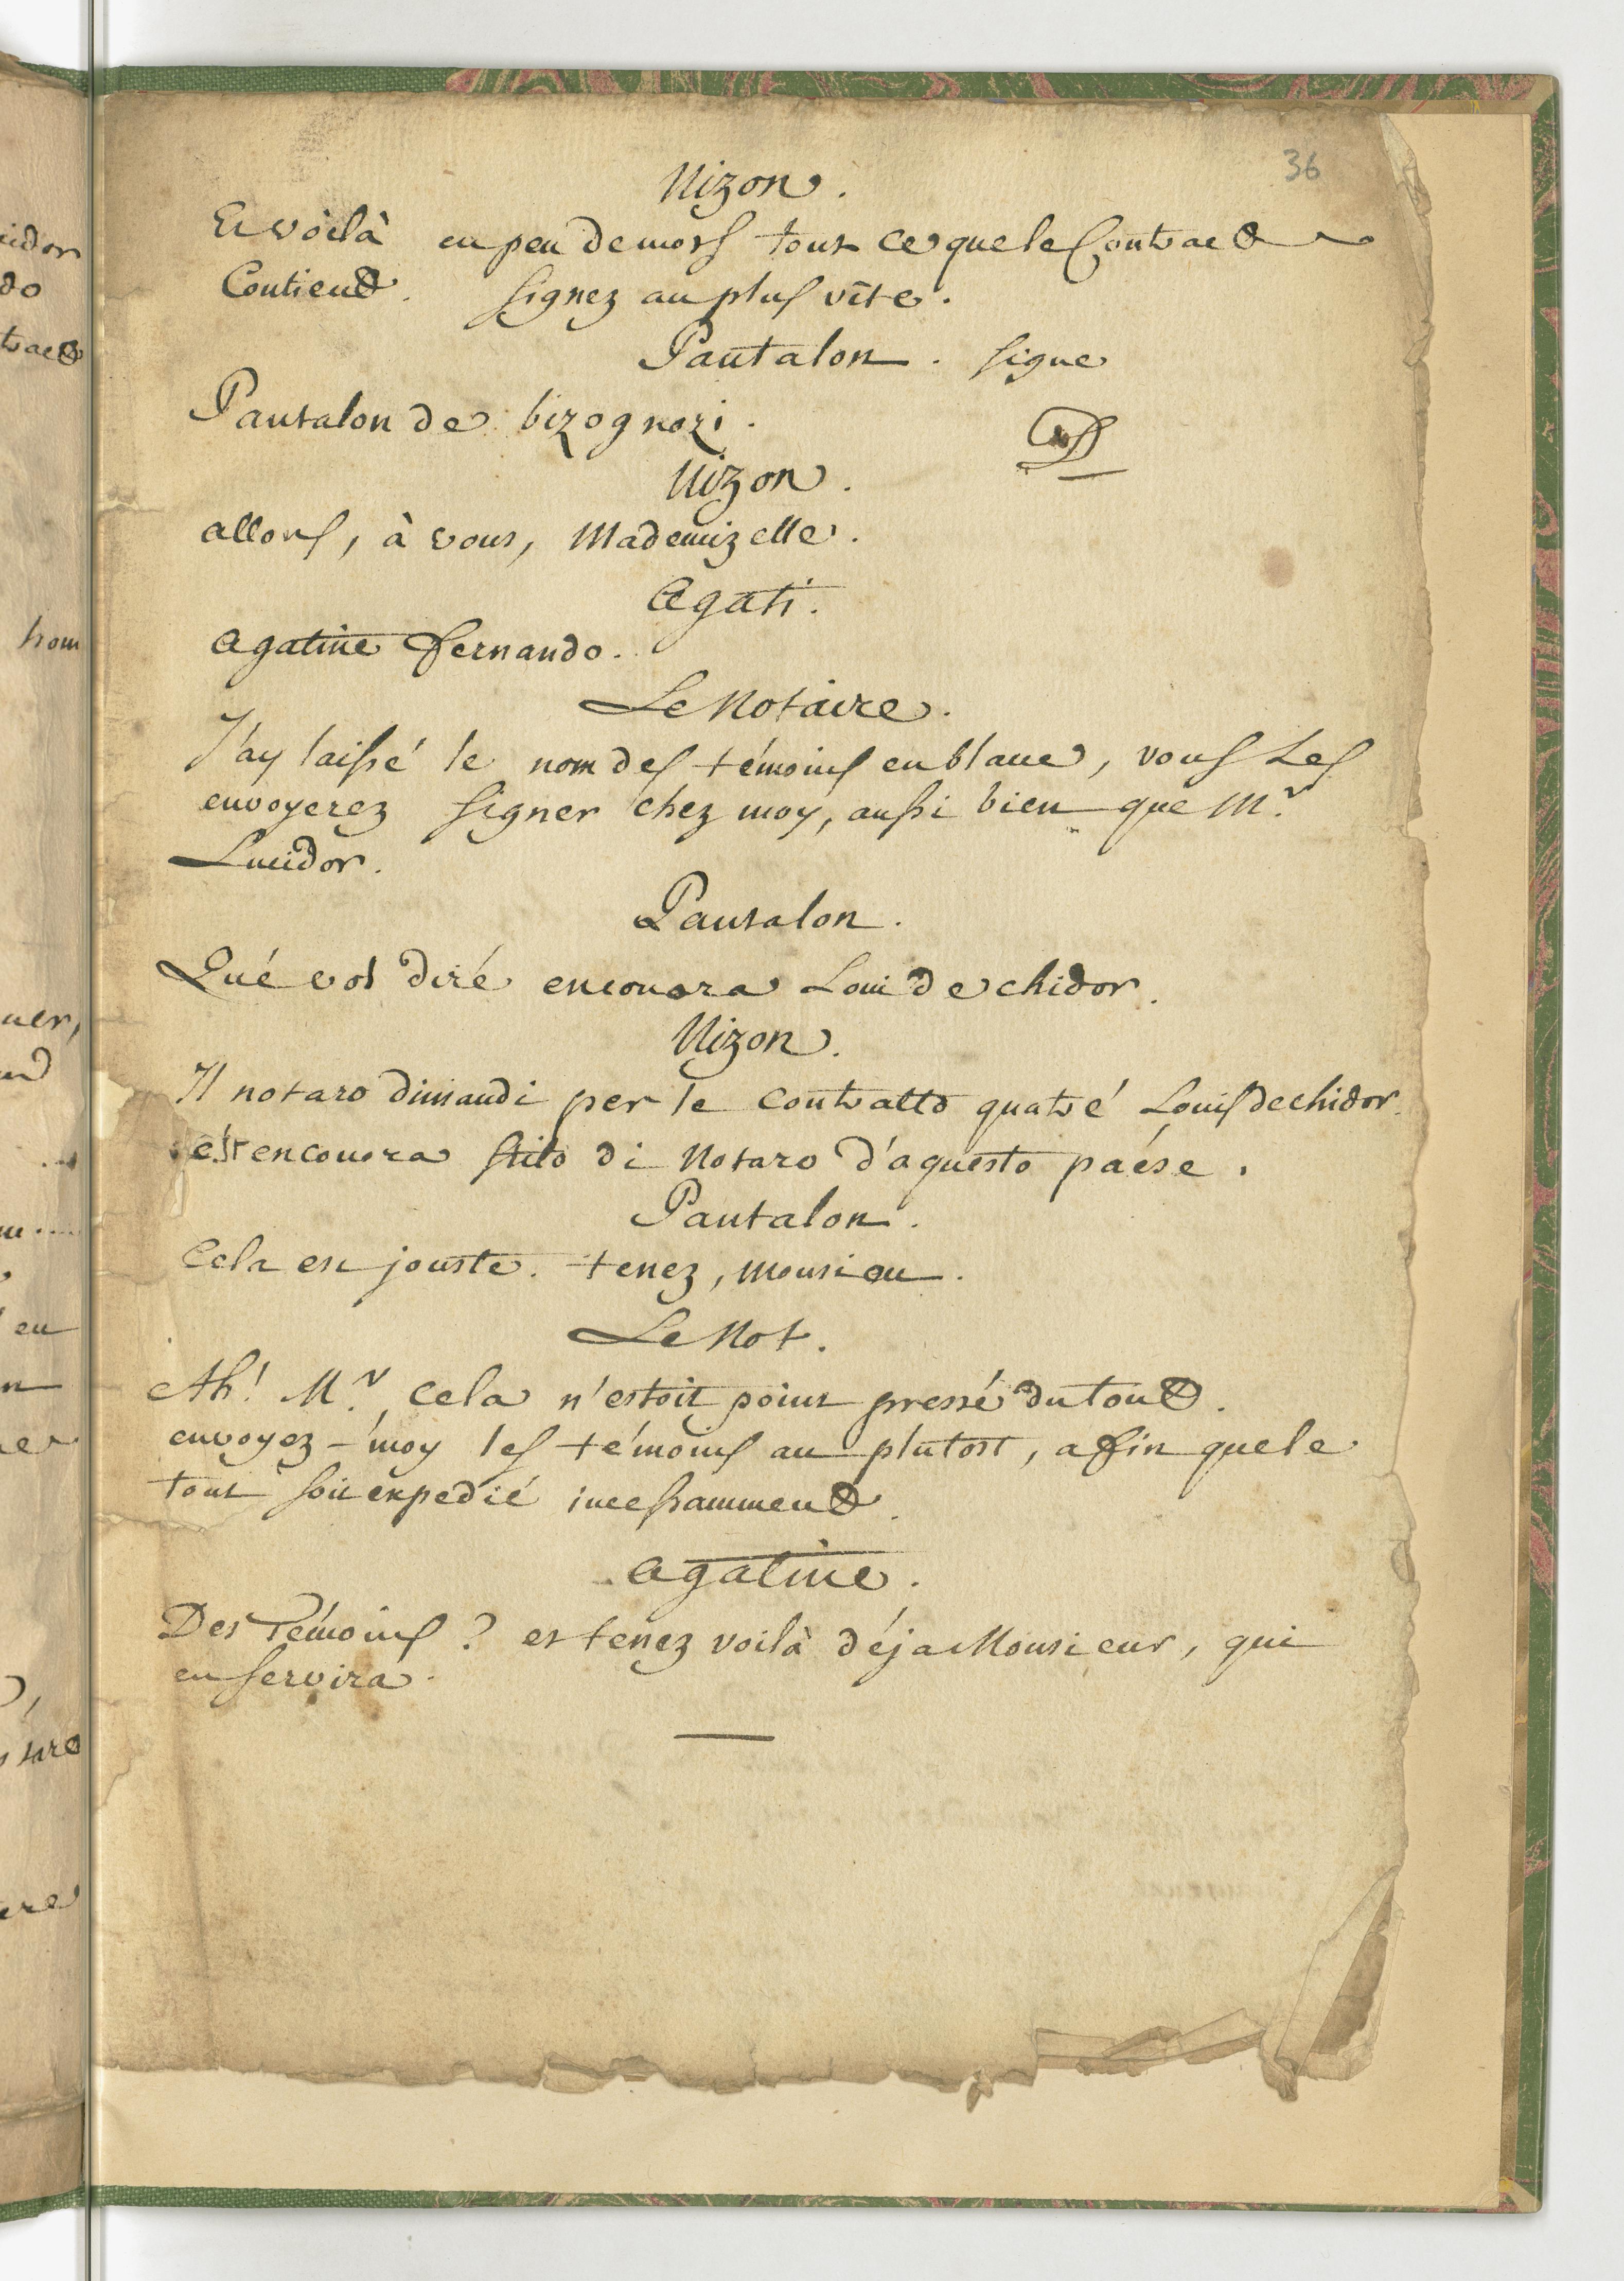 36
Nizon.
Et voilà en peu de mots tout ce que le Contract
Contient. signez au plus vîte.
Pantalon. signe
Pantalon de bizognozi.
Nizon.
allons, à vous, Mademizelle.
Agati.
Agatine Fernando.
Le Notaire.
J'ay laissé le nom des témoins en blanc, vous Les
envoyerez signer chez moy, aussi bien que Mr.
Lucidor.
Pantalon.
Qué vol diré encouora Loui de chidor.
Nizon.
Il notaro dimandi per le contratto quatré Louis de chidor.
ést encouora stilo di Notaro d'aquesto paése.
Pantalon.
Cela est jouste. tenez, monsiou.
Le Not.
Ah! Mr., cela n'estoit point pressé du tout.
envoyez-moy les témoins au plutost, afin que le
tout soit expedié incessamment.
Agatine.
Des Témoins? et tenez voilà déja Monsieur, qui
en servira.